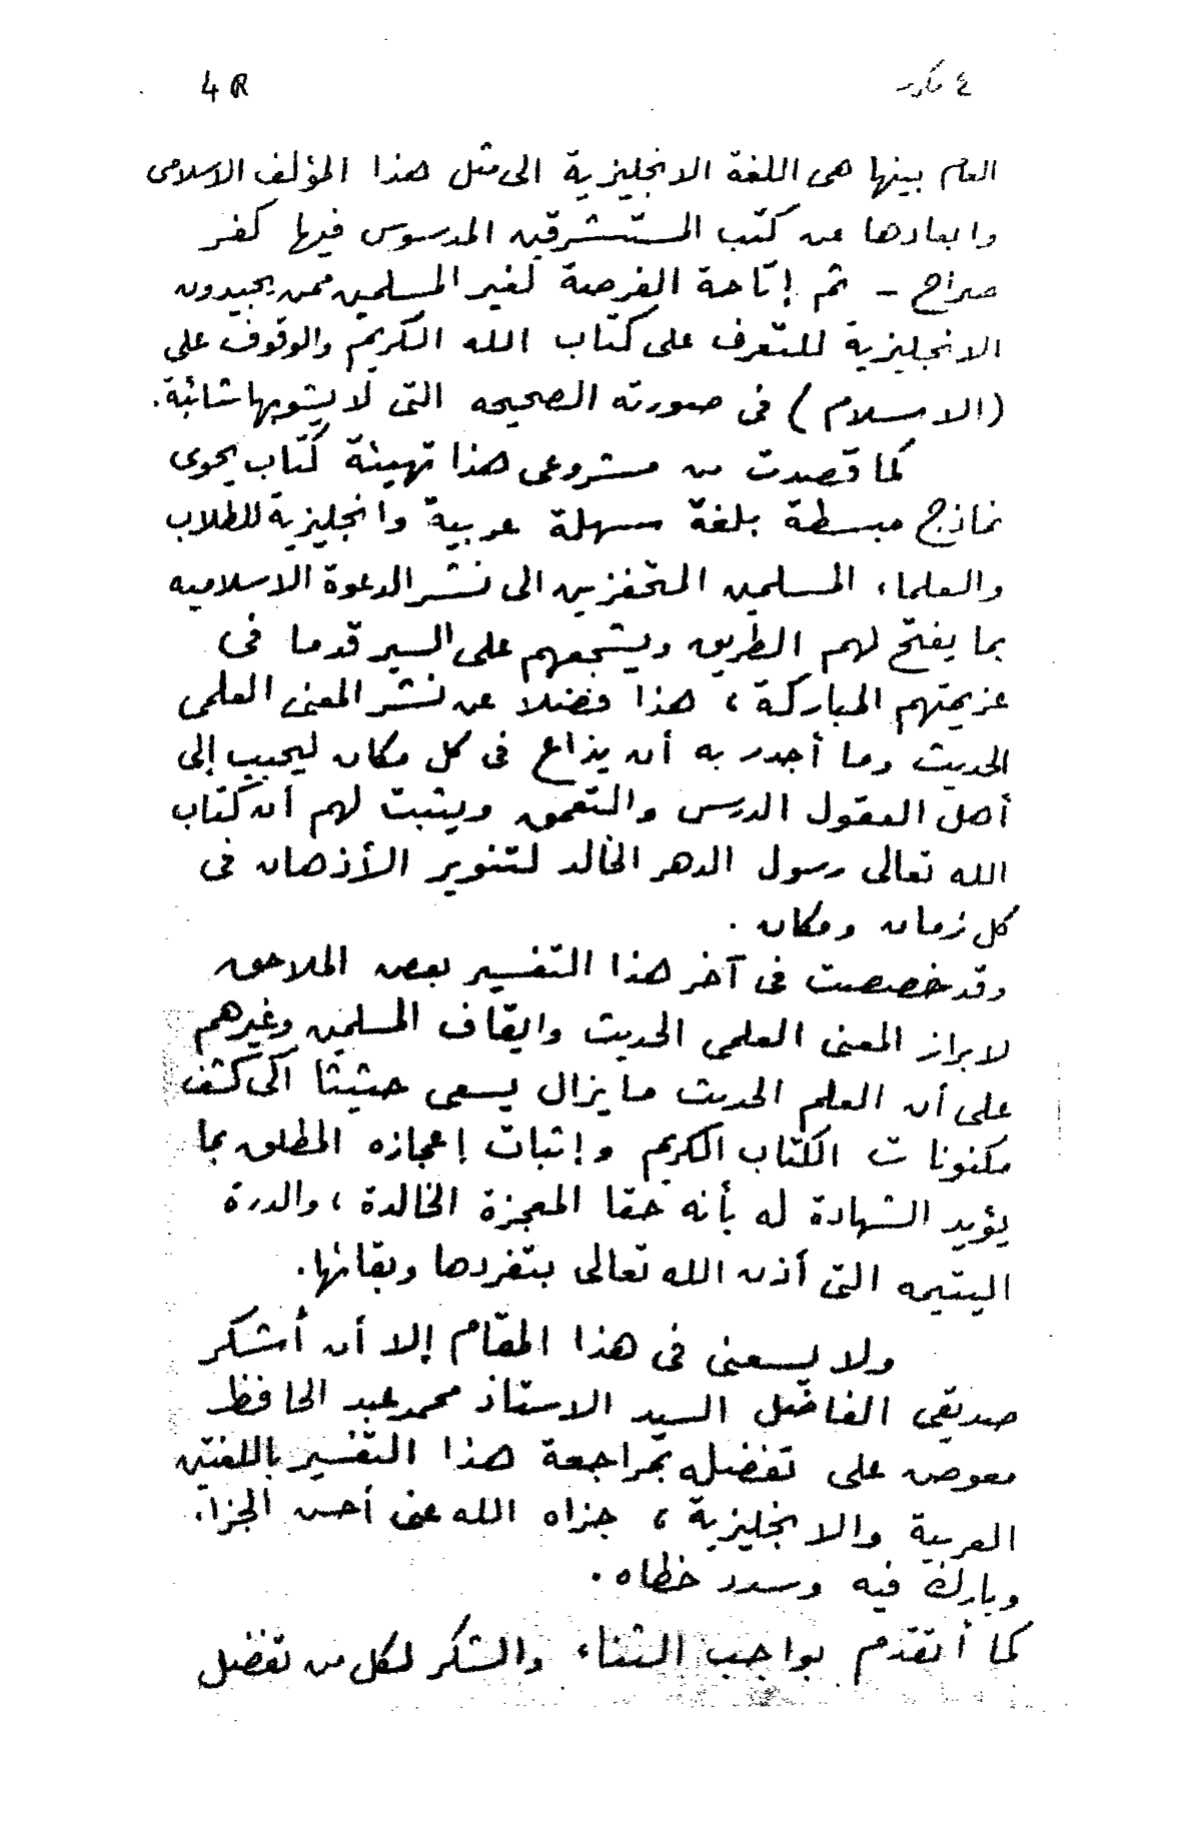 4R
٤ مكرر
العام بينها هى اللغة الانجليزية الى مثل هذا المؤلف الاسلامى
وابعادها عن كتب المستشرقين المدسوس فيها كفر
صراح - ثم إتاحة الفرصة لغير المسلمين ممن يجيدون
الانجليزية للتعرف على كتاب الله الكريم والوقوف على
(الاسلام) فى صورته الصحيحه التى لا يشوبها شائبة.
كما قصدت من مشروعى هذا تهيئة كتاب يحوى
نماذج مبسطة بلغة سهلة عربية وانجليزية للطلاب
والعلماء المسلمين المتحفزين الى نشر الدعوة الاسلاميه
بما يفتح لهم الطريق ويشجعهم على السير قدما فى
عزيمتهم المباركة، هذا فضلا عن نشر المعنى العلمى
الحديث وما أجدر به أن يذاع فى كل مكان ليحبب إلى
أهل العقول الدرس والتعمق ويثبت لهم أن كتاب
الله تعالى رسول الدهر الخالد لتنوير الأذهان فى
كل زمان ومكان.
وقد خصصت فى آخر هذا التفسير بعض الملاحق
لابراز المعنى العلمى الحديث وايقاف المسلمين وغيرهم
على أن العلم الحديث ما يزال يسعى حثيثا الى كشف
مكنونات الكتاب الكريم وإثبات إعجازه المطلق بما
يؤيد الشهادة له بأنه حقا المعجزة الخالدة، والدرة
اليتيمه التى أذن الله تعالى بتفردها وبقائها.
ولا يسعنى فى هذا المقام إلا أن أشكر
صديقى الفاضل السيد الاستاذ محمد عبد الحافظ
معوض على تفضله بمراجعة هذا التفسير باللغتين
العربية والانجليزية، جزاه الله عنى أحسن الجزاء
وبارك فيه وسدد خطاه.
كما أتقدم بواجب الثناء والشكر لكل من تفضل